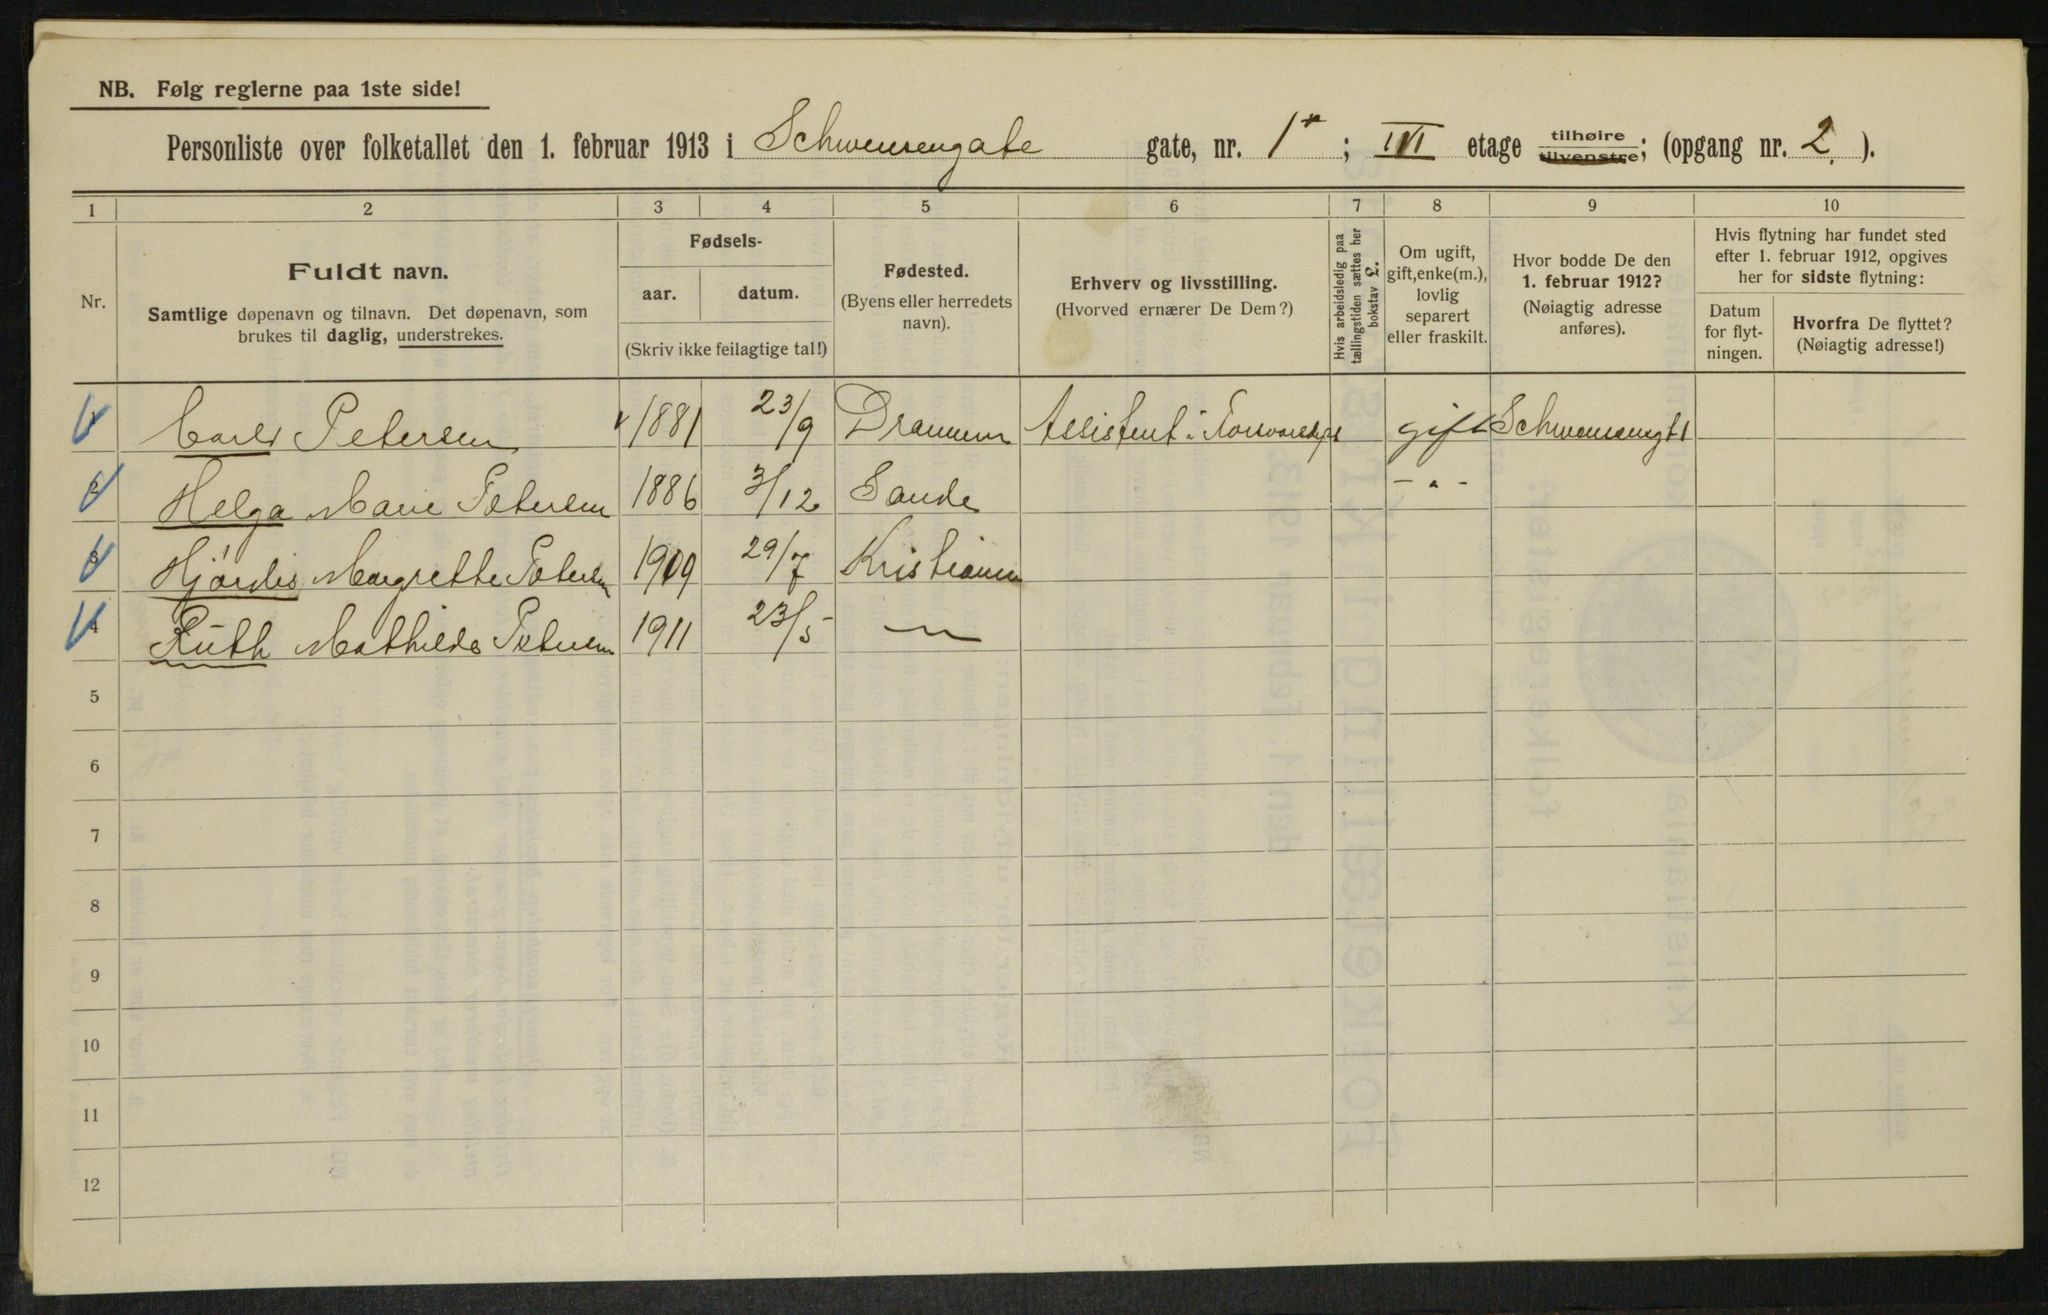 NB. Følg reglerne paa 1ste side!
Personliste over folketallet den 1. februar 1913 i Schwensengate gate, nr. 1 ; etage tilhøire tilvenstre; (opgang nr. 2. ).
1 2 3 4 5 6 7 8 9 10
Nr.
Fuldt navn.
Samtlige døpenavn og tilnavn. Det døpenavn, som
brukes til daglig, understrekes.
Fødsels-
aar. datum.
(Skriv ikke feilagtige tal!)
Fødested.
(Byens eller herredets
navn).
Erhverv og livsstilling.
(Hvorved ernærer De Dem?)
Hvis arbeidsledig paa
tællingstiden sættes her
bokstav L.
Om ugift,
gift, enke(m.),
lovlig
separert
eller fraskilt.
Hvor bodde De den
1. februar 1912?
(Nøiagtig adresse
anføres).
Hvis flytning har fundet sted
efter 1. februar 1912, opgives
her for sidste flytning:
Datum
for flyt-
ningen.
Hvorfra De flyttet?
(Nøiagtig adresse!)
1 Carl Petersen 1881 23/9 Drammen Assistent i gift Schwensengt 1
2 Helga Marie Petersen 1886 3/12 Sande - " -
3 Hjørdis Margrethe Petersen 1909 29/7 Kristiania
4 Ruth Mathilde Petersen 1911 23/5 —
5
6
7
8
9
10
11
12